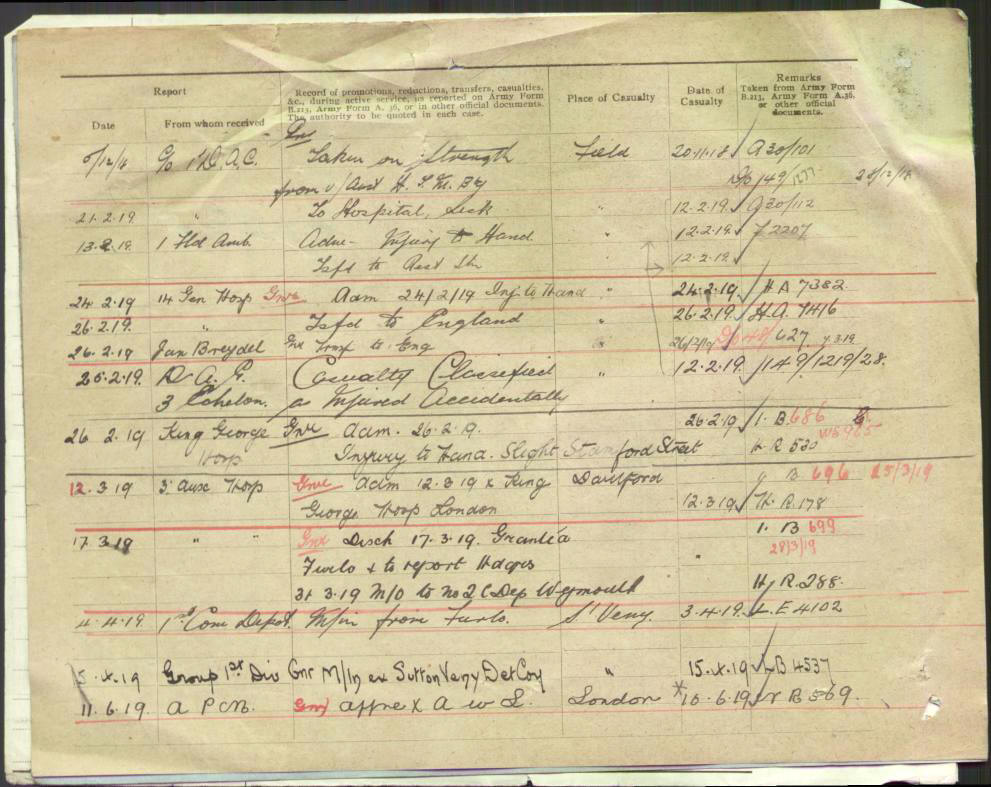 Report
Record of promotions, reductions, transfers, casualties, &c., during active service, as reported on Army Form B.213, Army Form A. 36, or in other official documents. The authority to be quoted in each case.
Place of Casualty
Date of Casualty
Remarks
Taken from Army Form B.213, Army Form A.36, or other official documents.
Date
From whom received
Gnr
1 D.A.C. Taken on Strength Field 20.11.18 A30/101
from Aust H. T. M. By 28/12/18
21.2.19 " To Hospital, Sick " 12.2.19 A30/112
13.2.19 1 Fld Amb. Adm- Injury to Hand " 12.2.19 F2207
Tsfd to Rest Stn 12.2.19
24.2.19 14 Gen Hosp Gnr Adm 24/2/19 Inj to Hand " 24.2.19 H A 7382
26.2.19. " Tsfd to England " 26.2.19 H.A. 7416
26.2.19 Jan Breydel Gnr Transf to Eng " 26/2/19 627
25.2.19. D A G. Casualty Classified " 12.2.19. 149/1219/28.
3 Echelon. as Injured Accidentally
26 2.19 King George Gnr adm. 26.2.19. 26.2.19 I. B. 686
Hosp Injury to Hand. Slight Stamford Street H. R 530
12.3.19 3 Aux Hosp Gnr adm 12.3.19 x King Dartford B 696 25/3/19
George Hosp London 12.3.19 H. R. 178
I. B 699
17.3.19 " " Gnr Disch 17.3.19. Granted 28/3/19
Furlo & to report Hdqrs "
31 3.19 M/O to No 2 C Dep Weymouth H. R. 288.
4.4.19 1st Com Depot. M/in from Furlo. S' Veny. 3.4.19. L.E 4102
15.x.19 Group 1st Div Gnr M/In ex Sutton Veny Det Coy " 15.x.19 B 4537
11.6.19. A P Gnr London 10.6.19 B 569.